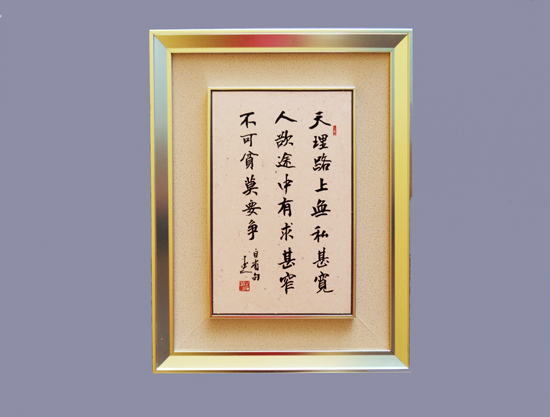 天理路上無私甚寬
人欲途中有求甚窄
不可貪莫要爭
自省句